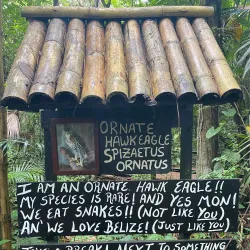 ORNATE
HAWK EAGLE
SPIZAETUS
ORNATUS
I AM AN ORNATE HAWK EAGLE!!
MY SPECIES IS RARE! AND YES MON!
WE EAT SNAKES!! (NOT LIKE YOU)
AN' WE LOVE BELIZE! (JUST LIKE YOU)
TAKE A BREAK NEXT TO SOMETHING